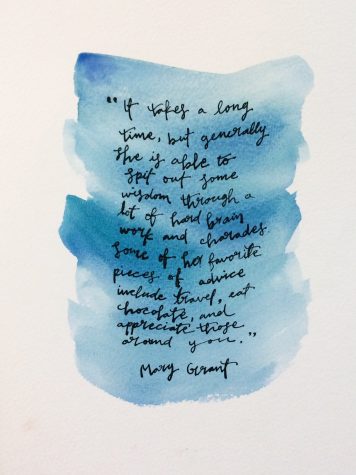 "It takes a long
time, but generally
she is able to
spit out some
wisdom through a
lot of hard brain
work and charades.
Some of her favorite
pieces of advice
include travel, eat
chocolate, and
appreciate those
around you."
Mary Grant